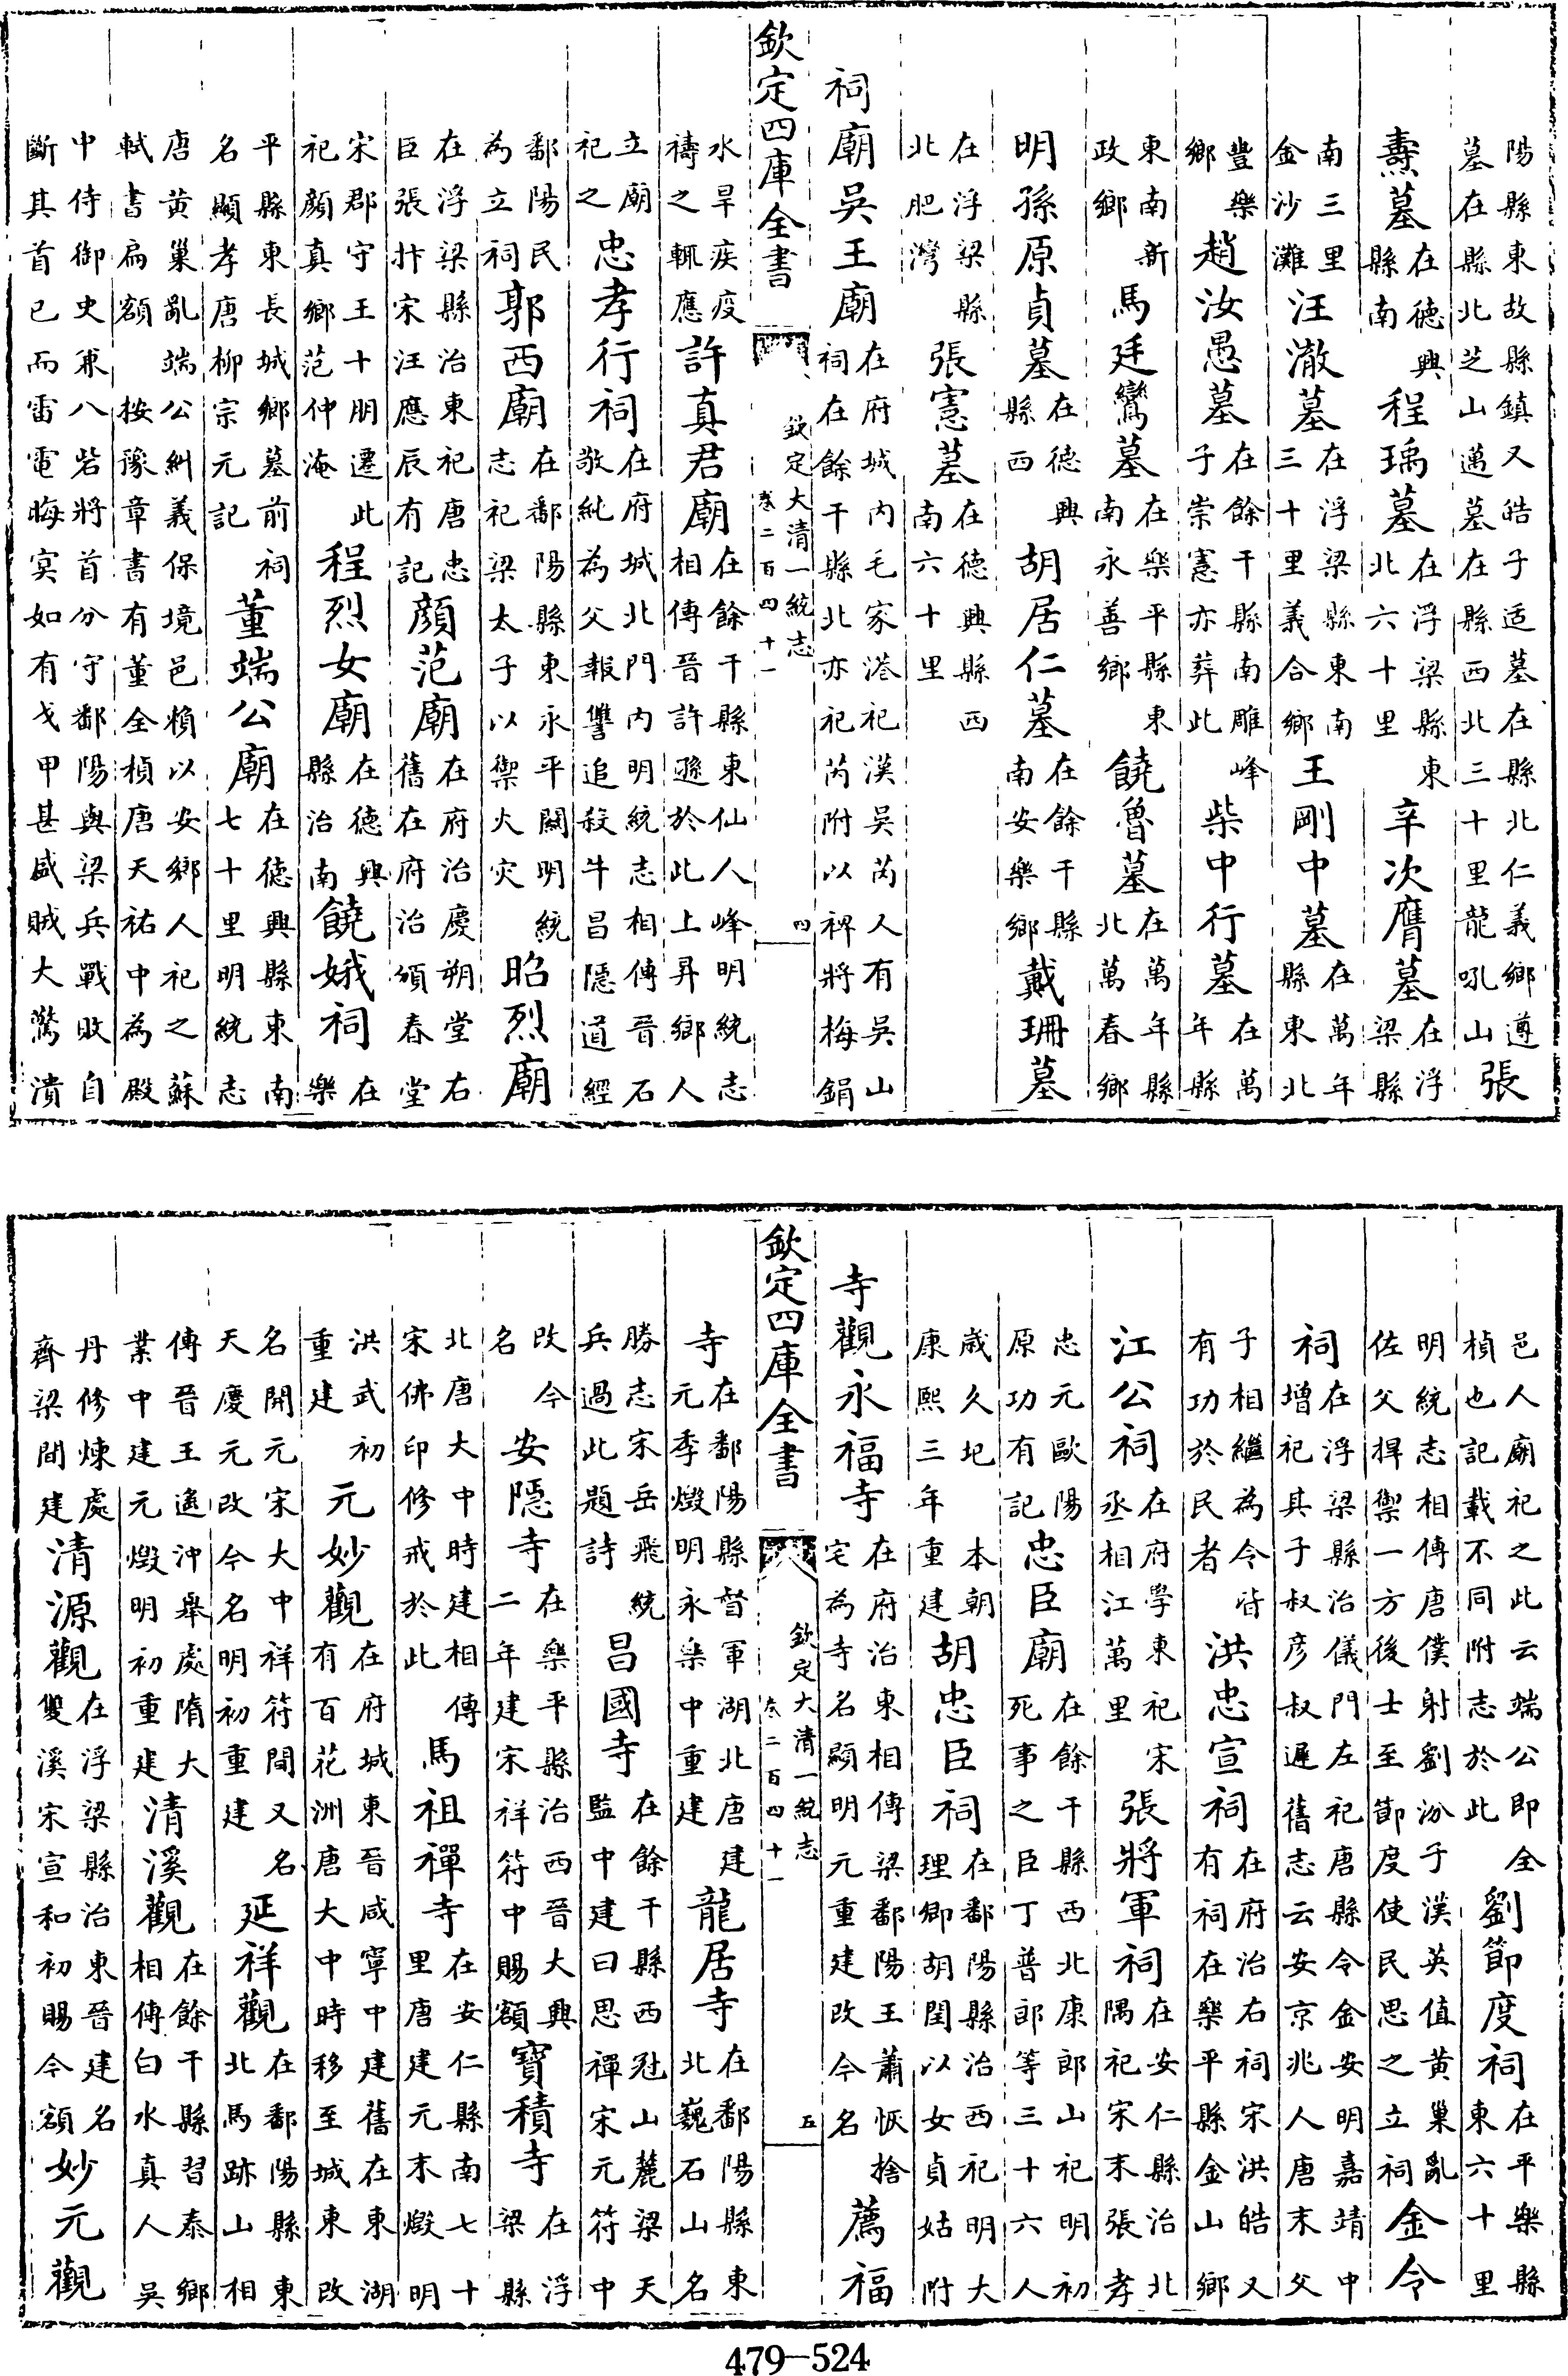 陽縣東故縣鎮又皓子适墓在縣北仁義鄉遵墓在縣北芝山邁墓在縣西北三十里龍吼山張
燾墓在德興縣南程瑀墓在浮梁縣東北六十里辛次膺墓在浮梁縣
南三里金沙灘汪澈墓在浮梁縣東南三十里義合鄉王剛中墓在萬年縣東北
豐樂鄉趙汝愚墓在餘干縣南雕峰子崇憲亦葬此柴中行墓在萬年縣
東南新政鄉馬廷鸞墓在樂平縣東南永善鄉饒魯墓在萬年縣北萬春鄉
明孫原貞墓在德興縣西胡居仁墓在餘干縣南安樂鄉戴珊墓
在浮梁縣北肥灣張憲墓在德興縣西南六十里
祠廟吳王廟在府城內毛家港祀漢吳芮人有吳山祠在餘干縣北亦祀芮附以裨將梅鋗
欽定四庫全書 欽定大清一統志 卷二百四十一 四
水旱疾疫禱之輒應許真君廟在餘干縣東仙人峰明統志相傳晉許遜於此上昇鄉人
立廟祀之忠孝行祠在府城北門內明統志相傳晉石敬純為父報讐追殺牛昌隱道經
鄱陽民為立祠郭西廟在鄱陽縣東永平關明統志祀梁太子以禦火灾昭烈廟
在浮梁縣治東祀唐忠臣張抃宋汪應辰有記顏范廟在府治慶朔堂右舊在府治頒春堂
宋郡守王十朋遷此祀顏真鄉范仲淹程烈女廟在德興縣治南饒娥祠在樂
平縣東長城鄉墓前祠名顯孝唐柳宗元記董端公廟在德興縣東南七十里明統志
唐黃巢亂端公糾義保境邑賴以安鄉人祀之蘇軾書扁額 按豫章書有董全楨唐天祐中為殿
中侍御史兼八砦將首分守鄱陽與梁兵戰敗自斷其首已而雷電晦冥如有戈甲甚盛賊大驚潰
邑人廟祀之此云端公即全楨也記載不同附志於此劉節度祠在平樂縣東六十里
明統志相傳唐僕射劉汾于漢英值黃巢亂佐父捍禦一方後士至節度使民思之立祠金令
祠在浮梁縣治儀門左祀唐縣令金安明嘉靖中增祀其子叔彥叔遲舊志云安京兆人唐末父
子相繼為令皆有功於民者洪忠宣祠在府治右祠宋洪皓又有祠在樂平縣金山鄉
江公祠在府學東祀宋丞相江萬里張將軍祠在安仁縣治北隅祀宋末張孝
忠元歐陽原功有記忠臣廟在餘干縣西北康郎山祀明初死事之臣丁普郎等三十六人
歲久圮 本朝康熙三年重建胡忠臣祠在鄱陽縣治西祀明大理卿胡閏以女貞姑附
寺觀永福寺在府治東相傳梁鄱陽王蕭恢捨宅為寺名顯明元重建改今名薦福
欽定四庫全書 欽定大清一統志 卷二百四十一 五
寺在鄱陽縣督軍湖北唐建元季燬明永樂中重建龍居寺在鄱陽縣東北巍石山名
勝志宋岳飛統兵過此題詩昌國寺在餘干縣西冠山麓梁天監中建曰思禪宋元符中
改今名安隱寺在樂平縣治西晉大興二年建宋祥符中賜額寶積寺在浮梁縣
北唐大中時建相傳宋佛印修戒於此馬祖禪寺在安仁縣南七十里唐建元末燬明
洪武初重建元妙觀在府城東晉咸寧中建舊在東湖有百花洲唐大中時移至城東改
名開元宋大中祥符間又名天慶元改今名明初重建延祥觀在鄱陽縣東北馬跡山相
傳晉王遙沖舉處隋大業中建元燬明初重建清溪觀在餘干縣習泰鄉相傳白水真人吳
丹修煉處齊梁間建清源觀在浮梁縣治東晉建名雙溪宋宣和初賜今額妙元觀
479—524